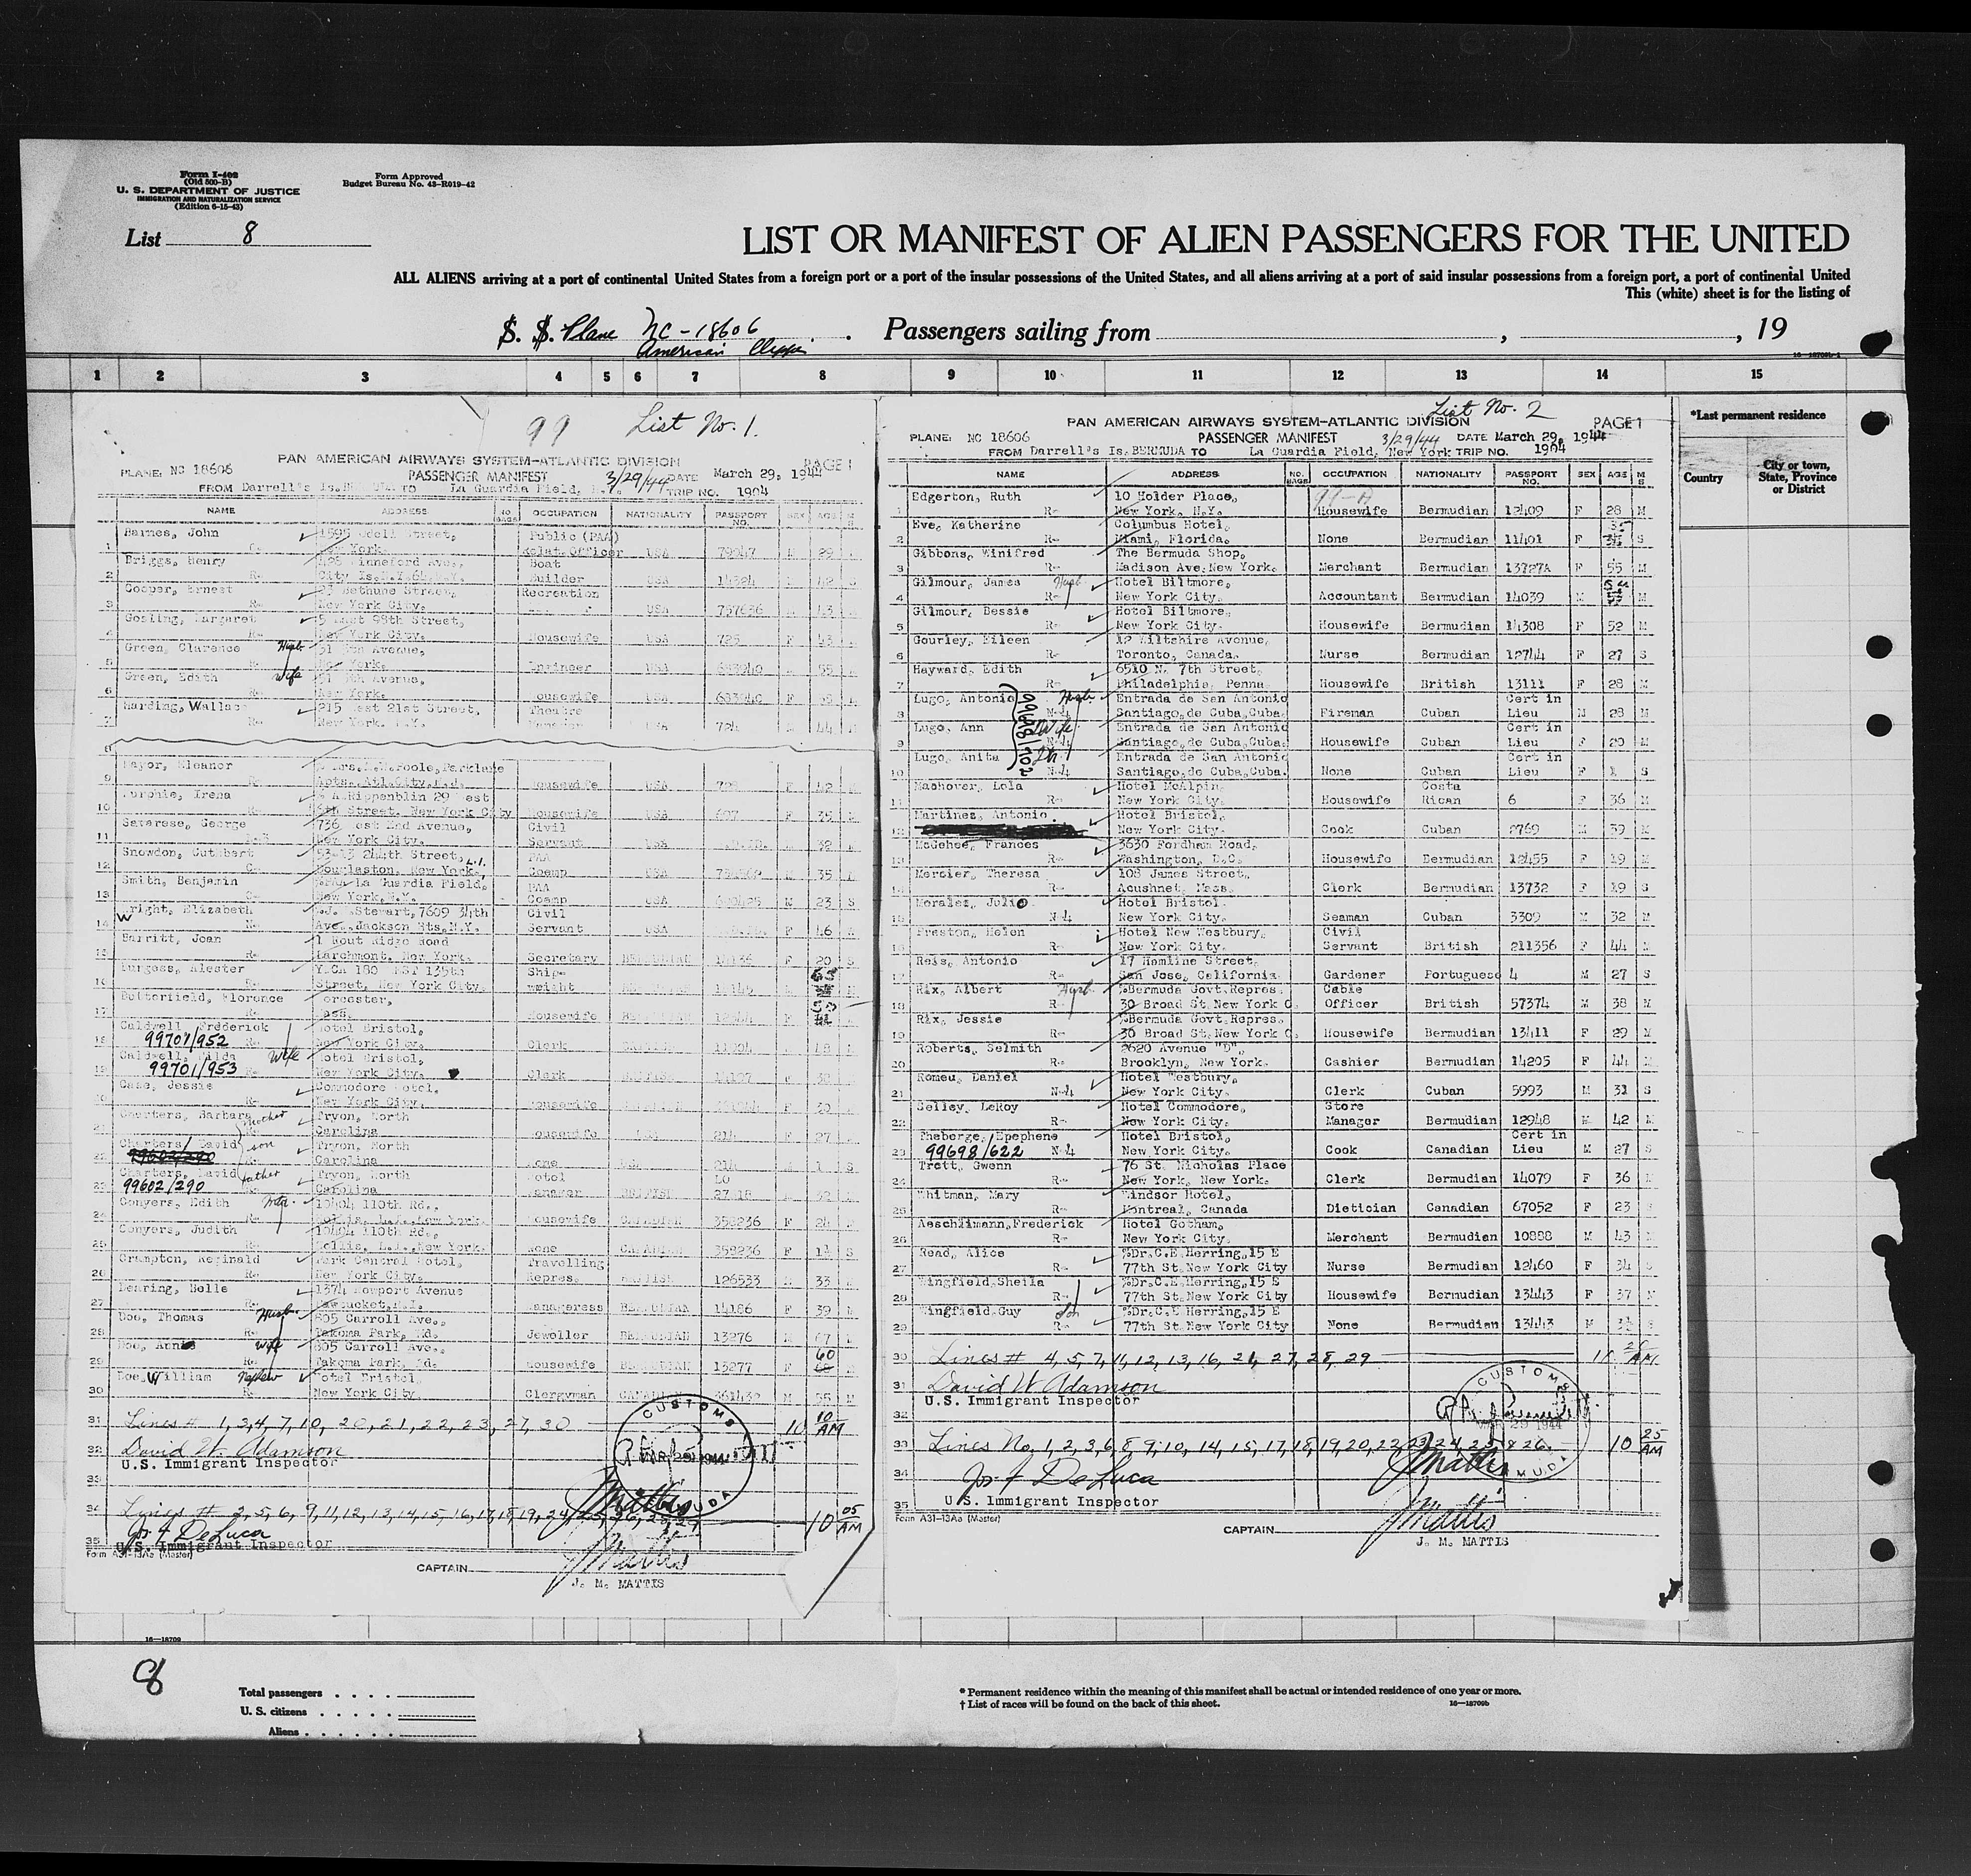 Form I-402
(Old 500-B)
U. S. DEPARTMENT OF JUSTICE
IMMIGRATION AND NATURALIZATION SERVICE
(Edition 6-15-43)
Form Approved
Budget Bureau No. 43-R019-42
List 8
LIST OR MANIFEST OF ALIEN PASSENGERS FOR THE UNITED
ALL ALIENS arriving at a port of continental United States from a foreign port or a port of the insular possessions of the United States, and all aliens arriving at a port of said insular possessions from a foreign port, a port of continental United
This (white) sheet is for the listing of
S. S. Plane NC-18606 Passengers sailing from , , 19
American Clipper
1 2 3 4 5 6 7 8 9 10 11 12 13 14 15
99 List No. 1.
PAGE 1
PAN AMERICAN AIRWAYS SYSTEM-ATLANTIC DIVISION
PLANE: NC 18606 PASSENGER MANIFEST 3/29/44 DATE March 29, 1944
FROM Darrell's Is. TO La Guardia Field, TRIP NO. 1904
NAME ADDRESS NO BAGS OCCUPATION NATIONALITY PASSPORT NO. SEX AGE
Barnes, John Street, Public (PAA)
1 New York. Relat.Officer USA 79947 29
Briggs, Henry 428 Minneford Ave., Boat
2 R- City Is.N.Y.64,N.Y. Builder USA 14324 42 S
Cooper, Ernest 23 Bethune Street, Recreation
3 R- New York City. USA 757636 43
Gosling, Margaret 5 East 98th Street,
4 R- New York City. Housewife USA 725 F 43
Green, Clarence Husb 51 5th Avenue,
5 R- New York. Engineer USA 683940 55
Green, Edith Wife 51 5th Avenue,
6 R- New York. Housewife USA 683940 F
Harding, Wallace 215 West 21st Street, Theatre
7 R- New York. N.Y. USA 724 44
8
Mayor, Eleanor Parklane
9 R- Apts. Atl.City,N.J. Housewife USA F 42
Irena Rippenblin 29 West
10 R- Street, New York City Housewife USA 607 F 35
Savarese, George 736 West End Avenue, Civil
11 New York City. Servant USA 32
Snowdon, Cuthbert 244th Street, L.I. PAA
12 Douglaston, New York. Coemp USA 35
Smith, Benjamin La Guardia Field, PAA
13 New York,N.Y. Coemp USA M 23 S
Wright, Elizabeth Stewart,7609 34th Civil
14 R- Ave.,Jackson Hts.N.Y. Servant USA F 46
Barritt, Joan 1 Rout Ridge Road
15 R- Larchmont, New York. Secretary BERMUDIAN F 20 S
Burgess, Alester YMCA 180 WEST 135th Ship- 65
16 R- Street, New York City. wright
Butterfield, Florence Worcester, 50
17 R- Mass. Housewife F
Caldwell Frederick Hotel Bristol,
18 99701/952 R- New York City. Clerk
Caldwell, Hilda Wife Hotel Bristol,
19 99701/953 R- New York City. Clerk F
Case, Jessie Commodore Hotel,
20 R- New York City. Housewife F
Charters, Barbara mother Tryon, North
21 Carolina Housewife USA 214 F 27
Charters, David son Tryon, North
22 Carolina None 214 1 S
Charters, David father Tryon, North Hotel
23 99602/290 Carolina Manager 32
Conyers, Edith 10404 110th Rd.,
24 R- Hollis, L.I.,New York. Housewife CANADIAN 358236 F
Conyers, Judith 10404 110th Rd.,
25 R- Hollis, L.I.,New York. None CANADIAN 358236 F S
Crampton, Reginald Park Central Hotel, Travelling
26 R- New York City. Repres. BRITISH 126533 M 33
Dearing, Belle 1374 Newport Avenue
27 R- Pawtucket,R.I. Manageress BERMUDIAN 14186 F 39
Doe, Thomas Husb. 805 Carroll Ave.,
28 R- Takoma Park, Md. Jeweller BERMUDIAN 13276 M 67
Doe, Anne Wife 805 Carroll Ave., 60
29 R- Takoma Park, Md. Housewife BERMUDIAN 13277 F
Doe, William Nephew Hotel Bristol,
30 R- New York City. Clergyman CANADIAN 361439 M 55 M
31 Lines # 1, 3, 4, 7, 10, 20, 21, 22, 23, 27, 30 10 10 AM
32 David W. Adamson
U.S. Immigrant Inspector
33
34 Lines # 2, 5, 6, 9, 11, 12, 13, 14, 15, 16, 17, 18, 19, 24, 25, 26, 28, 29 10 05 AM
Jos F DeLuca
35 U.S. Immigrant Inspector
Form A31-13Aa (Master)
CUSTOMS
BERMUDA
J Mattis
CAPTAIN J Mattis
J. M. MATTIS
List No. 2
PAN AMERICAN AIRWAYS SYSTEM-ATLANTIC DIVISION PAGE 1
PLANE: NC 18606 PASSENGER MANIFEST 3/29/44 DATE March 29, 1944
FROM Darrell's Is. BERMUDA TO La Guardia Field, New York TRIP NO. 1904
NAME ADDRESS NO. BAGS OCCUPATION NATIONALITY PASSPORT NO. SEX AGE M S
Edgerton, Ruth 10 Holder Place, 99-A
1 R- New York, N.Y. Housewife Bermudian 12409 F 28 M
Eve, Katherine Columbus Hotel, 35
2 R- Miami, Florida. None Bermudian 11401 F S
Gibbons, Winifred The Bermuda Shop,
3 R- Madison Ave.New York. Merchant Bermudian 13727A F 55 M
Gilmour, James Husb Hotel Biltmore, 54
4 R- New York City. Accountant Bermudian 14039 M M
Gilmour, Bessie Hotel Biltmore,
5 R- New York City. Housewife Bermudian 14308 F 52 M
Gourley, Eileen 12 Wiltshire Avenue,
6 R- Toronto, Canada. Nurse Bermudian 12744 F 27 S
Hayward, Edith 6510 N. 7th Street,
7 R- Philadelphia, Penna. Housewife British 13111 F 28 M
Lugo, Antonio Husb. Entrada de San Antonio Cert in
8 N-4 Santiago,de Cuba,Cuba. Fireman Cuban Lieu M 28 M
Lugo, Ann Wife Entrada de San Antonio Cert in
9 N-4 Santiago,de Cuba,Cuba. Housewife Cuban Lieu F 20 M
Lugo, Anita Dh Entrada de San Antonio Cert in
10 N-4 Santiago,de Cuba,Cuba. None Cuban Lieu F 1 S
99698/702
Machover, Lola Hotel McAlpin, Costa
11 R- New York City. Housewife Rican 6 F 36 M
Martinez, Antonio Hotel Bristol,
12 New York City. Cook Cuban 2769 M 39 M
McGehee, Frances 3630 Fordham Road,
13 R- Washington, D.C. Housewife Bermudian 12455 F 19 M
Mercier, Theresa 108 James Street,
14 R- Acushnet, Mass. Clerk Bermudian 13732 F 19 S
Morales, Julio Hotel Bristol.
15 N-4 New York City. Seaman Cuban 3309 M 32 M
Preston, Helen Hotel New Westbury, Civil
16 R- New York City. Servant British 211356 F 44 M
Reis, Antonio 17 Hamline Street,
17 R- San Jose, California. Gardener Portuguese 4 M 27 S
Rix, Albert Husb %Bermuda Govt.Repres. Cable
18 R- 30 Broad St.New York C. Officer British 57374 M 38 M
Rix, Jessie %Bermuda Govt.Repres.
19 R- 30 Broad St.New York C. Housewife Bermudian 13411 F 29 M
Roberts, Selmith 2620 Avenue "D",
20 R- Brooklyn, New York. Cashier Bermudian 14205 F 44 M
Romeu, Daniel Hotel Westbury,
21 N-4 New York City. Clerk Cuban 5993 M 31 S
Selley, LeRoy Hotel Commodore, Store
22 R- New York City. Manager Bermudian 12948 M 42 M
Theberge, Epephene Hotel Bristol, Cert in
23 99698/622 N-4 New York City. Cook Canadian Lieu M 27 S
Trott, Gwenn 76 St. Nicholas Place
24 R- New York, New York. Clerk Bermudian 14079 F 36
Whitman, Mary Windsor Hotel,
25 R- Montreal, Canada Dietician Canadian 67052 F 23 S
Aeschlimann,Frederick Hotel Gotham,
26 R- New York City. Merchant Bermudian 10888 M 43 M
Read, Alice %Dr.C.E.Herring,15 E
27 R- 77th St.New York City Nurse Bermudian 12460 F 34 S
Wingfield,Sheila %Dr.C.E Herring,15 E
28 R- 77th St.New York City Housewife Bermudian 13443 F 37 M
Wingfield,Guy Son %Dr.C.E Herring,15 E
29 R- 77th St.New York City None Bermudian 13443 M S
30 Lines # 4, 5, 7, 11, 12, 13, 16, 21, 27, 28, 29 AM
31 David W Adamson
U.S. Immigrant Inspector
32
33 Lines No. 1, 2, 3, 6, 8, 9, 10, 14, 15, 17, 18, 19, 20, 22, 23, 24, 25, & 26. 10 25 AM
34 Jos F DeLuca
35 U.S. Immigrant Inspector
Form A31-13Aa (Master)
CUSTOMS
MAR 29 1944
BERMUDA
J Mattis
CAPTAIN J Mattis
J. M. MATTIS
*Last permanent residence
Country
City or town, State, Province or District
16-18709
8
Total passengers . . . .
U. S. citizens . . . . .
Aliens . . . . . .
* Permanent residence within the meaning of this manifest shall be actual or intended residence of one year or more.
† List of races will be found on the back of this sheet.
16-18709b